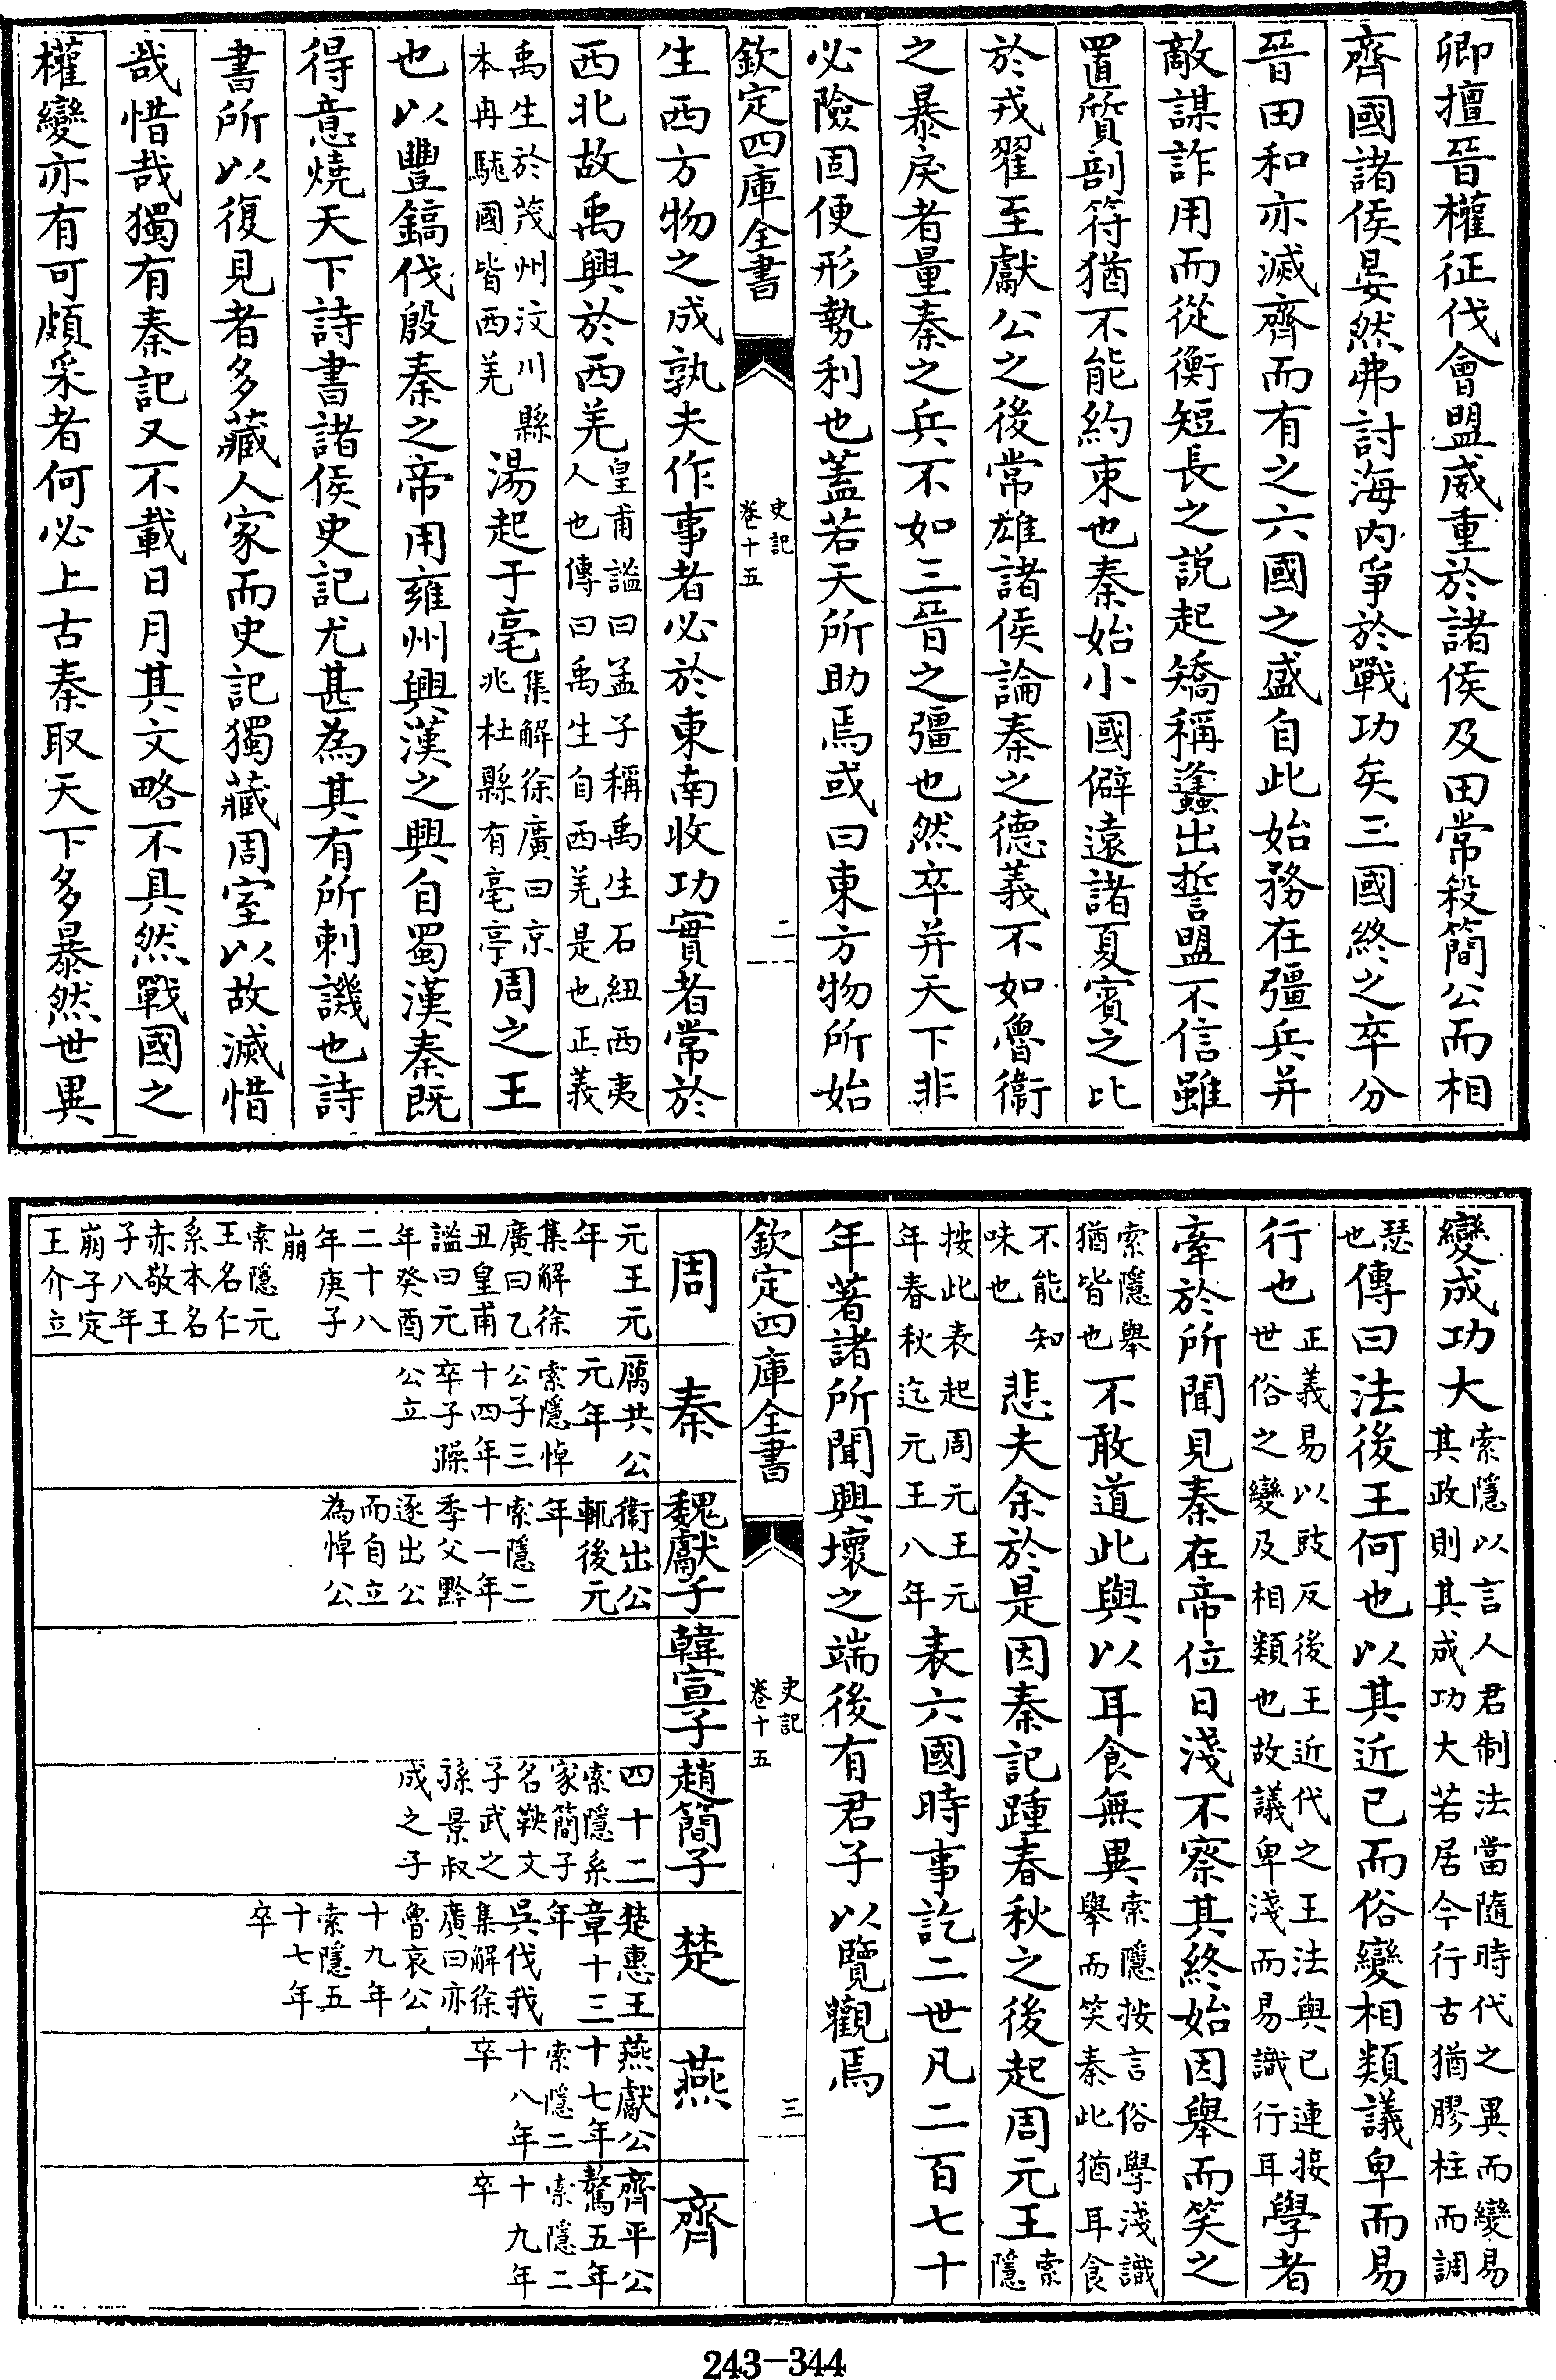 卿擅晉權征伐會盟威重於諸侯及田常殺簡公而相
齊國諸侯晏然弗討海内爭於戰功矣三國終之卒分
晉田和亦滅齊而有之六國之盛自此始務在彊兵并
敵謀詐用而從衡短長之説起矯稱蠭出誓盟不信雖
置質剖符猶不能約束也秦始小國僻遠諸夏賓之比
於戎翟至獻公之後常雄諸侯論秦之德義不如魯衞
之暴戾者量秦之兵不如三晉之彊也然卒并天下非
必險固便形勢利也蓋若天所助焉或曰東方物所始
欽定四庫全書
史記
卷十五
二
生西方物之成孰夫作事者必於東南收功實者常於
西北故禹興於西羌皇甫謐曰孟子稱禹生石紐西夷人也傳曰禹生自西羌是也正義
禹生於茂州汶川縣本冉駹國皆西羌湯起于亳集解徐廣曰京兆杜縣有亳亭周之王
也以豐鎬伐殷秦之帝用雍州興漢之興自蜀漢秦既
得意燒天下詩書諸侯史記尤甚為其有所刺譏也詩
書所以復見者多藏人家而史記獨藏周室以故滅惜
哉惜哉獨有秦記又不載日月其文略不具然戰國之
權變亦有可頗采者何必上古秦取天下多暴然世異
變成功大索隱以言人君制法當隨時代之異而變易其政則其成功大若居今行古猶膠柱而調
瑟也傳曰法後王何也以其近已而俗變相類議卑而易
行也正義易以豉反後王近代之王法與已連接世俗之變及相類也故議卑淺而易識行耳學者
牽於所聞見秦在帝位日淺不察其終始因舉而笑之
索隱舉猶皆也不敢道此與以耳食無異索隱按言俗學淺識舉而笑秦此猶耳食
不能知味也悲夫余於是因秦記踵春秋之後起周元王索隱
按此表起周元王元年春秋迄元王八年表六國時事訖二世凡二百七十
年著諸所聞興壞之端後有君子以覽觀焉
欽定四庫全書
史記
卷十五
三
周
元王元
年
集解徐
廣曰乙
丑皇甫
謐曰元
年癸酉
二十八
年庚子
崩
索隱元
王名仁
系本名
赤敬王
子八年
崩子定
王介立
秦
厲共公
元年
索隱悼
公子三
十四年
卒子躁
公立
魏獻子
衞出公
輒後元
年
索隱二
十一年
季父黔
逐出公
而自立
為悼公
韓宣子
趙簡子
四十二
索隱系
家簡子
名鞅文
子武之
孫景叔
成之子
楚
楚惠王
章十三
年
吳伐我
集解徐
廣曰亦
魯哀公
十九年
索隱五
十七年
卒
燕
燕獻公
十七年
索隱二
十八年
卒
齊
齊平公
驁五年
索隱二
十九年
卒
243-344